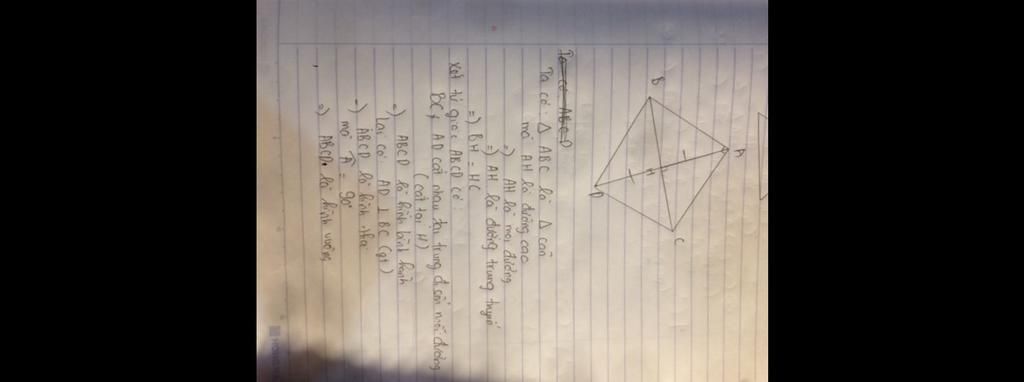 B
A
H
D
C
Ta có ABCD
Ta có: Δ ABC là Δ cân
mà AH là đường cao
=) AH là mọi đường
=) AH là đường trung tuyến
=) BH = HC
Xét tứ giác ABCD có:
BC, AD cắt nhau tại trung điểm mỗi đường
(cắt tại H)
=) ABCD là hình bình hành
Lại có: AD ⊥ BC (gt)
=) ABCD là hình thoi
mà Â = 90°
=) ABCD là hình vuông